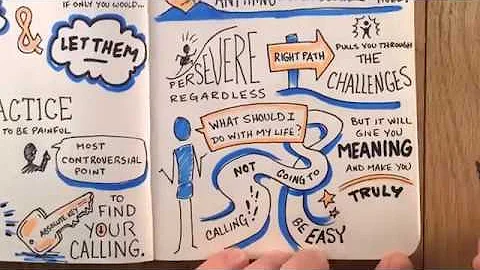 IF ONLY YOU WOULD...
&
LET THEM
ACTICE
TO BE PAINFUL
MOST
CONTROVERSIAL
POINT
ABSOLUTE KEY
TO
FIND
YOUR
CALLING.
ANYTHING
PERSEVERE
REGARDLESS
RIGHT PATH
PULLS YOU THROUGH
THE
CHALLENGES
WHAT SHOULD I
DO WITH MY LIFE?
NOT
GOING TO
BE EASY
CALLING!!
BUT IT WILL
GIVE YOU
MEANING
AND MAKE YOU
TRULY